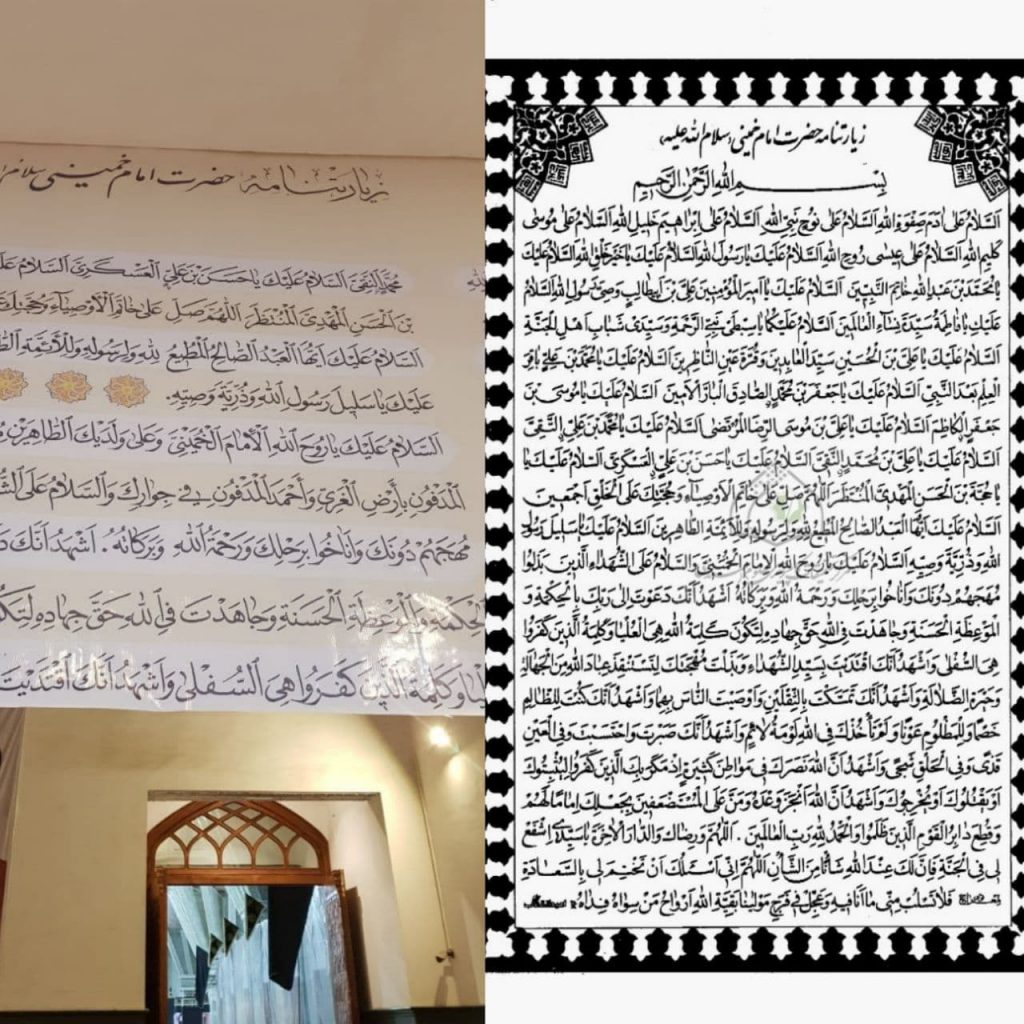 زیارتنامه حضرت امام خمینی سلام
مُحَمَّدٍ النَّقِيِّ اَلسَّلامُ عَلَيْكَ يا حَسَنَ بْنَ عَلِيٍّ الْعَسْكَرِيَّ اَلسَّلامُ
بْنَ الْحَسَنِ الْمَهْدِيَّ الْمُنْتَظَرَ اَللّهُمَّ صَلِّ عَلى خاتَمِ الْاَوْصِياءِ وَحُجَّتِكَ
اَلسَّلامُ عَلَيْكَ اَيُّهَا الْعَبْدُ الصّالِحُ الْمُطيعُ لِلّهِ وَلِرَسُولِهِ وَلِلْاَئِمَّةِ
عَلَيْكَ يا سَليلَ رَسُولِ اللهِ وَذُرِّيَّةَ وَصِيِّهِ.
اَلسَّلامُ عَلَيْكَ يا رُوحَ اللهِ الْاِمامَ الْخُمَيْنِيَّ وَعَلى وَلَدَيْكَ الطّاهِرَيْنِ
الْمَدْفُونِ بِأَرْضِ الْغَرِيِّ وَأَحْمَدَ الْمَدْفُونِ فِي جِوارِكَ وَالسَّلامُ عَلَى
مُهَجَهُمْ دُونَكَ وَاَناخُوا بِرَحْلِكَ وَرَحْمَةُ اللهِ وَبَرَكاتُهُ. اَشْهَدُ اَنَّكَ
الْحِكْمَةِ وَالْمَوْعِظَةِ الْحَسَنَةِ وَجاهَدْتَ فِي اللهِ حَقَّ جِهادِهِ
وَكَلِمَةُ الَّذينَ كَفَرُوا هِيَ السُّفْلى وَاَشْهَدُ اَنَّكَ اقْتَدَيْتَ
زیارتنامه حضرت امام خمینی (سلام الله علیه)
بِسْمِ اللهِ الرَّحْمنِ الرَّحيمِ
اَلسَّلامُ عَلى ادَمَ صَفْوَةِ اللهِ اَلسَّلامُ عَلى نُوحٍ نَبِيِّ اللهِ اَلسَّلامُ عَلى اِبْراهيمَ خَليلِ اللهِ اَلسَّلامُ عَلى مُوسى
كَليمِ اللهِ اَلسَّلامُ عَلى عيسى رُوحِ اللهِ اَلسَّلامُ عَلَيْكَ يا رَسُولَ اللهِ اَلسَّلامُ عَلَيْكَ يا خَيْرَ خَلْقِ اللهِ اَلسَّلامُ عَلَيْكَ
يا مُحَمَّدَ بْنَ عَبْدِ اللهِ خاتَمَ النَّبِيّينَ اَلسَّلامُ عَلَيْكَ يا اَميرَ الْمُؤْمِنينَ عَلِيَّ بْنَ اَبيطالِبٍ وَصِيَّ رَسُولِ اللهِ اَلسَّلامُ
عَلَيْكِ يا فاطِمَةُ سَيِّدَةَ نِساءِ الْعالَمينَ اَلسَّلامُ عَلَيْكُما يا سِبْطَيْ نَبِيِّ الرَّحْمَةِ وَسَيِّدَيْ شَبابِ اَهْلِ الْجَنَّةِ
اَلسَّلامُ عَلَيْكَ يا عَلِيَّ بْنَ الْحُسَيْنِ سَيِّدَ الْعابِدينَ وَقُرَّةَ عَيْنِ النّاظِرينَ اَلسَّلامُ عَلَيْكَ يا مُحَمَّدَ بْنَ عَلِيٍّ باقِرَ
الْعِلْمِ بَعْدَ النَّبِيِّ اَلسَّلامُ عَلَيْكَ يا جَعْفَرَ بْنَ مُحَمَّدٍ الصّادِقَ الْبارَّ الْاَمينَ اَلسَّلامُ عَلَيْكَ يا مُوسَى بْنَ
جَعْفَرٍ الْكاظِمَ اَلسَّلامُ عَلَيْكَ يا عَلِيَّ بْنَ مُوسَى الرِّضَا الْمُرْتَضى اَلسَّلامُ عَلَيْكَ يا مُحَمَّدَ بْنَ عَلِيٍّ التَّقِيَّ
اَلسَّلامُ عَلَيْكَ يا عَلِيَّ بْنَ مُحَمَّدٍ النَّقِيَّ اَلسَّلامُ عَلَيْكَ يا حَسَنَ بْنَ عَلِيٍّ الْعَسْكَرِيَّ اَلسَّلامُ عَلَيْكَ يا
حُجَّةَ بْنَ الْحَسَنِ الْمَهْدِيَّ الْمُنْتَظَرَ اَللّهُمَّ صَلِّ عَلى خاتَمِ الْاَوْصِياءِ وَحُجَّتِكَ عَلَى الْخَلْقِ اَجْمَعينَ
اَلسَّلامُ عَلَيْكَ اَيُّهَا الْعَبْدُ الصّالِحُ الْمُطيعُ لِلّهِ وَلِرَسُولِهِ وَلِلْاَئِمَّةِ الطّاهِرينَ اَلسَّلامُ عَلَيْكَ يا سَليلَ رَسُولِ
اللهِ وَذُرِّيَّةَ وَصِيِّهِ اَلسَّلامُ عَلَيْكَ يا رُوحَ اللهِ الْاِمامَ الْخُمَيْنِيَّ وَالسَّلامُ عَلَى الشُّهَداءِ الَّذينَ بَذَلُوا
مُهَجَهُمْ دُونَكَ وَاَناخُوا بِرَحْلِكَ وَرَحْمَةُ اللهِ وَبَرَكاتُهُ اَشْهَدُ اَنَّكَ دَعَوْتَ اِلى رَبِّكَ بِالْحِكْمَةِ وَ
الْمَوْعِظَةِ الْحَسَنَةِ وَجاهَدْتَ فِي اللهِ حَقَّ جِهادِهِ لِتَكُونَ كَلِمَةُ اللهِ هِيَ الْعُلْيا وَكَلِمَةُ الَّذينَ كَفَرُوا
هِيَ السُّفْلى وَاَشْهَدُ اَنَّكَ اقْتَدَيْتَ بِسَيِّدِ الشُّهَداءِ وَبَذَلْتَ مُهْجَتَكَ لِتَسْتَنْقِذَ عِبادَ اللهِ مِنَ الْجَهالَةِ
وَحَيْرَةِ الضَّلالَةِ وَاَشْهَدُ اَنَّكَ تَمَسَّكْتَ بِالثَّقَلَيْنِ وَاَوْصَيْتَ النّاسَ بِهِما وَاَشْهَدُ اَنَّكَ كُنْتَ لِلظّالِمِ
خَصْمًا وَلِلْمَظْلُومِ عَوْنًا وَلَمْ تَأْخُذْكَ فِي اللهِ لَوْمَةُ لائِمٍ وَاَشْهَدُ اَنَّكَ صَبَرْتَ وَاحْتَسَبْتَ وَفِي الْعَيْنِ
قَذًى وَفِي الْحَلْقِ شَجًى وَاَشْهَدُ اَنَّ اللهَ نَصَرَكَ في مَواطِنَ كَثيرَةٍ اِذْ مَكَرَ بِكَ الَّذينَ كَفَرُوا لِيُثْبِتُوكَ
اَوْ يَقْتُلُوكَ اَوْ يُخْرِجُوكَ وَاَشْهَدُ اَنَّ اللهَ اَنْجَزَ وَعْدَهُ وَمَنَّ عَلَى الْمُسْتَضْعَفينَ بِجَعْلِكَ اِمامًا لَهُمْ
وَقُطِعَ دابِرُ الْقَوْمِ الَّذينَ ظَلَمُوا وَالْحَمْدُ لِلّهِ رَبِّ الْعالَمينَ . اَللّهُمَّ رِضاكَ وَالدّارَ الْاخِرَةَ يا سَيِّدِي اشْفَعْ
لي فِي الْجَنَّةِ فَاِنَّ لَكَ عِنْدَ اللهِ شَأْنًا مِنَ الشَّأْنِ اَللّهُمَّ اِنّي اَسْئَلُكَ اَنْ تَخْتِمَ لي بِالسَّعادَةِ
فَلا تَسْلُبْ مِنّي ما اَنَا فيهِ وَعَجِّلْ في فَرَجِ مَوْلينا بَقِيَّةِ اللهِ اَرْواحُ مَنْ سِواهُ فِداهُ